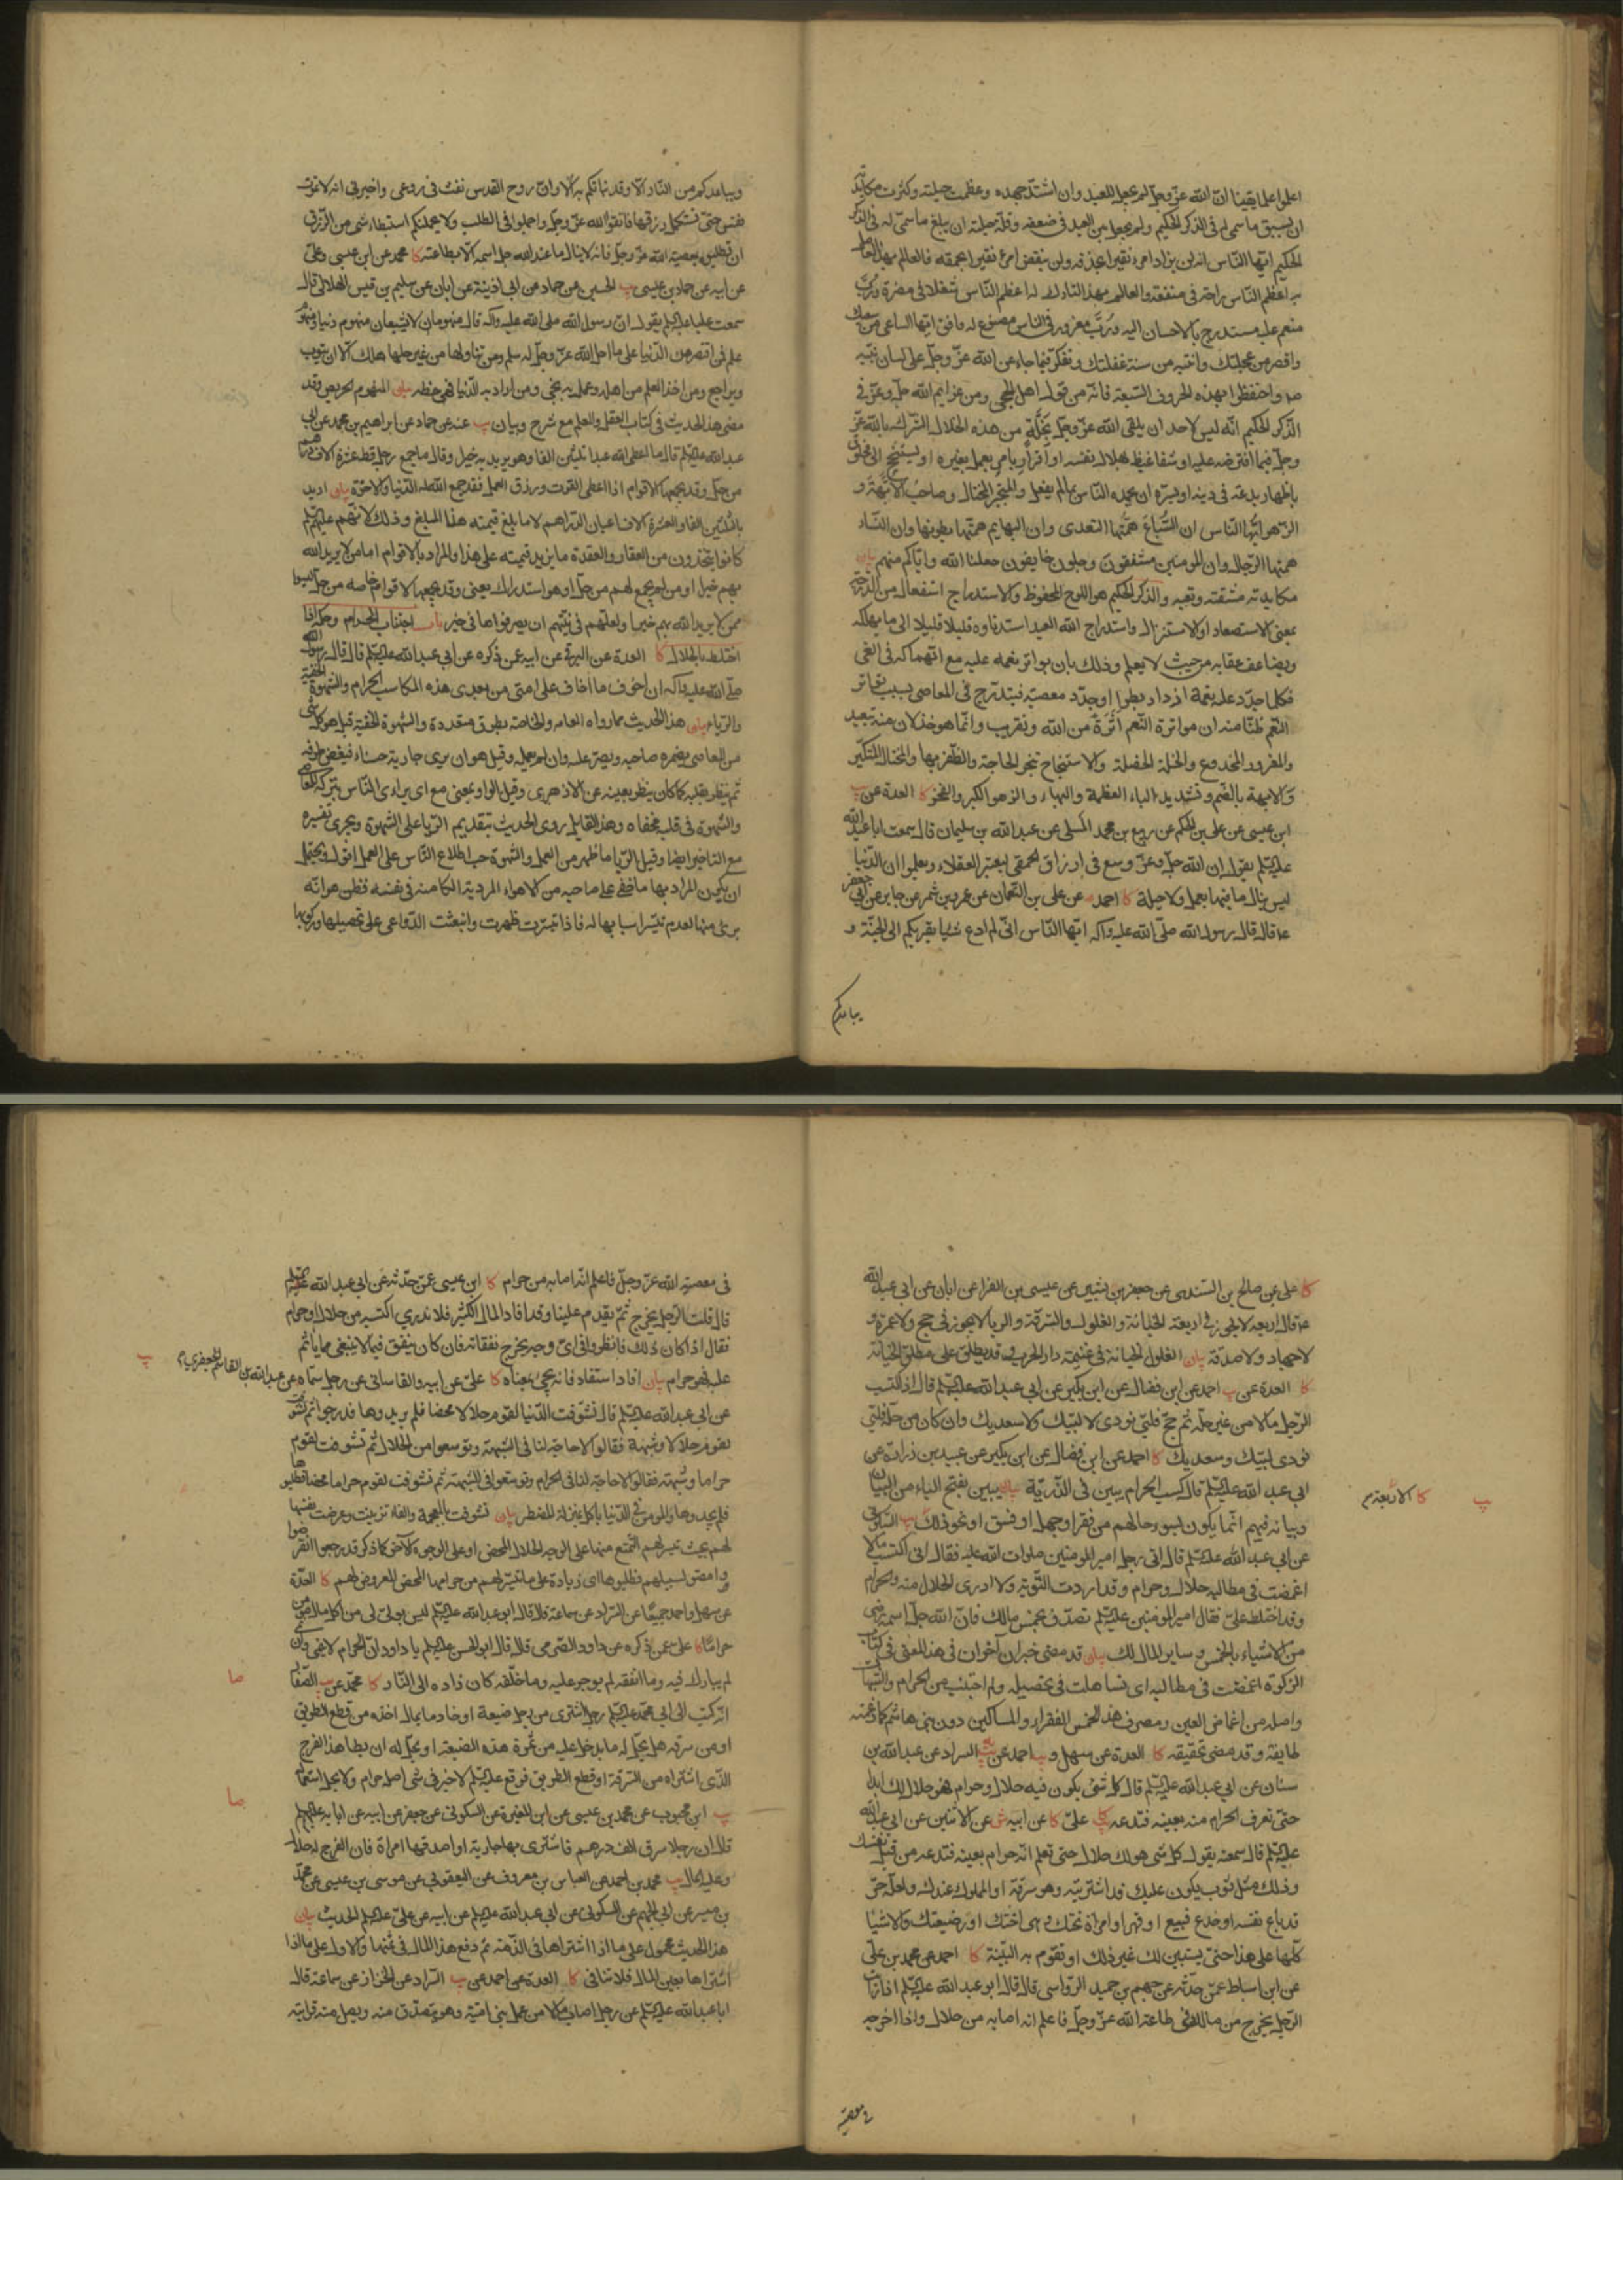 اعلموا علما يقينا ان الله عز وجل لم يجعل للعبد وان اشتد جهده وعظمت حيلته وكثرت مكايدته
ان يسبق ما سمى له في الذكر الحكيم ولم يحل بين العبد في ضعفه وقلة حيلته ان يبلغ ما سمى له في الذكر
الحكيم ايها الناس انه لن يزداد امرء نقيرا بحذقه ولن ينقص امرء نقيرا لحمقه فالعالم بهذا العامل
به اعظم الناس راحة في منفعته والعالم بهذا التارك له اعظم الناس شغلا في مضرة ورب
منعم عليه مستدرج بالاحسان اليه ورب مغرور في الناس مصنوع له فافق ايها الساعي من سعيك
واقصر من عجلتك وانتبه من سنة غفلتك وتفكر فيما جاء عن الله عز وجل على لسان نبيه
ص واحتفظوا بهذه الحروف السبعة فانه من قول اهل الحجى ومن عزايم الله جل وعز في
الذكر الحكيم انه ليس لاحد ان يلقى الله عز وجل بخلة من هذه الخلال الشرك بالله عز
وجل فيما افترض عليه او شفا غيظ بهلاك نفسه او اقرار يامر بعمل بغيره او يستنجح الى مخلوق
باظهار بدعة في دينه او يسره ان يحمده الناس بما لم يفعل والمتجبر المختال وصاحب الابهة و
الزهو ايها الناس ان السباع همتها التعدي وان البهايم همتها بطونها وان النساء
همتها الرجال وان المومنين مشفقون وجلون خايفون جعلنا الله واياكم منهم بيان
مكايدته مشقته وتعبه والذكر الحكيم هو اللوح المحفوظ والاستدراج استفعال من الدرجة
بمعنى الاستصعاد او الاستنزال واستدراج الله العبد استدناوه قليلا قليلا الى ما يهلكه
ويضاعف عقابه من حيث لا يعلم وذلك بان يواتر نعمه عليه مع انهماكه في الغى
فكلما جدد عليه نعمة ازداد بطرا وجدد معصية فيتدرج في المعاصي بسبب تواتر
النعم ظنا منه ان مواترة النعم اثرة من الله وتقريب وانما هو خذلان منه تبعيد
والمغرور المخدوع والخلة الخصلة والاستنجاح تنجز الحاجة والظفر بها والمختال المتكبر
والابهة بالضم وتشديد الباء العظمة والبهاء والزهو الكبر والفخر كا العدة عن يب
ابن عيسى عن علي بن الحكم عن ربيع بن محمد المسلي عن عبدالله بن سليمان قال سمعت ابا عبد الله
عليه السلم يقول ان الله جل وعز وسع في ارزاق الحمقى ليعتبر العقلاء ويعلموا ان الدنيا
ليس ينال ما فيها بعمل ولا حيلة كا احمد عن علي بن النعمان عن عمرو بن شمر عن جابر عن ابي جعفر
ع قال قال رسول الله صلى الله عليه واكه ايها الناس اني لم ادع شيئا يقربكم الى الجنة و
يباعدكم
ويباعدكم من النار الا وقد نباتكم به الا وان روح القدس نفث في روعي واخبرني انه لا تموت
نفس حتى تستكمل رزقها فاتقوا الله عز وجل واجملوا في الطلب ولا يحملنكم استبطاء شي من الرزق
ان تطلبوه بمعصية الله عز وجل فانه لا ينال ما عند الله جل اسمه الا بطاعته كا محمد عن ابن عيسى وعلى
عن ابيه عن حماد بن عيسى يب الحسين عن حماد عن ابن اذينة عن ابان عن سليم بن قيس الهلالي قال
سمعت عليا عليه السلم يقول ان رسول الله صلى الله عليه واكه قال منهومان لا يشبعان منهوم دنيا ومنهوم
علم فمن اقتصر من الدنيا على ما احل الله عز وجل له سلم ومن تناولها من غير حلها هلك الا ان يتوب
ويراجع ومن اخذ العلم من اهله وعمل به نجى ومن اراد به الدنيا فهي حظه بيان المنهوم الحريص وقد
مضى هذا الحديث في كتاب العقل والعلم مع شرح وبيان يب عنه عن حماد عن ابراهيم بن محمد عن ابي
عبد الله عليه السلم قال ما اعطى الله عبدا ثلثين الفا وهو يريد به خيرا وقال ما جمع رجل قط عشرة الاف درهم
من حل وقد يجمعها لاقوام اذا اعطى القوت ورزق العمل فقد جمع الله له الدنيا والاخرة بيان اريد
بالثلثين الفا والعشرة الاف اعيان الدراهم لا ما بلغ قيمته هذا المبلغ وذلك لانهم عليهم السلم
كانوا يتخذون من العقار والعقدة ما يزيد قيمته على هذا والمراد بالاقوام اما من لا يريد الله
بهم خيرا او من لم يجمع لهم من حل او هو استدراك يعني وقد يجمعها لاقوام خاصه من حل ليسوا
ممن لا يريد الله بهم خيرا ولعلهم في نيتهم ان يصرفوها في خير باب اجتناب الحرام وحكم ما
اختلط بالحلال كا العدة عن البرقي عن ابيه عمن ذكره عن ابي عبد الله عليه السلم قال قال رسول الله
صلى الله عليه واكه ان اخوف ما اخاف على امتي من بعدي هذه المكاسب الحرام والشهوة الخفية
والربا بيان هذا الحديث مما رواه العامه والخاصة بطرق متعددة والشهوة الخفية قيل هو كل شي
من المعاصي يضمره صاحبه ويصر عليه وان لم يعمله وقيل هو ان يرى جارية حسناء فيغض طرفه
ثم ينظر بقلبه كما كان ينظر بعينه عن الازهري وقيل الواو بمعنى مع اي يراءي الناس بتركه المعاصي
والشهوة في قلبه مخفاه وهذا القايل روى الحديث بتقديم الريا على الشهوة ويجرى تفسيره
مع التاخير ايضا وقيل الريا ما ظهر من العمل والشهوة حب اطلاع الناس على العمل اقول ويحتمل
ان يكون المراد بها ما خفى على صاحبه من الاهواء المردية الكامنه في نفسه فظن هو انه
برئ منها لعدم تيسر اسبابها له فاذا تيسرت ظهرت وانبعثت الدواعي على تحصيلها وركوبها
كا علي عن صالح بن السندي عن جعفر بن بشير عن عيسى بن الفراء عن ابان عن ابي عبد الله
ع قال اربعة لا يجوز في اربعة الخيانة والغلول والسرقة والربا لا يجوز في حج ولا عمرة و
لا جهاد ولا صدقة بيان الغلول الخيانة في غنيمة دار الحرب وقد يطلق على مطلق الخيانة
كا العدة عن يب احمد عن ابن فضال عن ابن بكير عن ابي عبد الله عليه السلم قال اذا اكتسب
الرجل مالا من غير حله ثم حج فلبى نودى لا لبيك ولا سعديك وان كان من حله فلبى
نودى لبيك وسعديك كا احمد عن ابن فضال عن ابن بكير عن عبيد بن زرارة عن
ابي عبد الله عليه السلم قال كسب الحرام يبين في الذرية بيان يبين بفتح الياء من البيان
وبيانه فيهم انما يكون لسوء حالهم من فقر او جهل او فسق او نحو ذلك يب السكوني
يب كا الاربعة
عن ابي عبد الله عليه السلم قال اتى رجل امير المومنين صلوات الله عليه فقال اني اكتسبت مالا
اغمضت في مطالبه حلالا وحراما وقد اردت التوبة ولا ادري الحلال منه والحرام
وقد اختلط علي فقال امير المومنين عليه السلم تصدق بخمس مالك فان الله جل اسمه رضي
من الاشياء بالخمس وساير المال لك بيان قد مضى خبران آخران في هذا المعنى في كتاب
الزكوة اغمضت في مطالبه اي تساهلت في تحصيله ولم اجتنب من الحرام والشبهات
واصله من اغماض العين ومصرف هذا الخمس الفقراء والمساكين دون بني هاشم كما زعمته
طايفة وقد مضى تحقيقه كا العدة عن سهل و يب احمد عن السراد عن عبد الله بن
سنان عن ابي عبد الله عليه السلم قال كل شئ يكون فيه حلال وحرام فهو حلال لك ابدا
حتى تعرف الحرام منه بعينه فتدعه كا علي كا عن ابيه ش عن الاثنين عن ابي عبد الله
عليه السلم قال سمعته يقول كل شي هو لك حلال حتى تعلم انه حرام بعينه فتدعه من قبل نفسك
وذلك مثل ثوب يكون عليك قد اشتريته وهو سرقة او المملوك عندك ولعله حر
قد باع نفسه او خدع فبيع او قهر او امراة تحتك وهي اختك او رضيعتك والاشياء
كلها على هذا حتى يستبين لك غير ذلك او تقوم به البينة كا احمد عن محمد بن علي
عن ابن اسباط عمن حدثه عن جهم بن حميد الرواسي قال قال ابو عبد الله عليه السلم اذا رايت
الرجل يخرج من ماله في طاعة الله عز وجل فاعلم انه اصابه من حلال واذا اخرجه
في معصية
في معصية الله عز وجل فاعلم انه اصابه من حرام كا ابن عيسى عمن حدثه عن ابي عبد الله عليه السلم
قال قلت الرجل يخرج ثم يقدم علينا وقد افاد المال الكثير فلا ندري اكتسبه من حلال او حرام
فقال اذا كان ذلك فانظروا في اي وجه يخرج نفقاته فان كان ينفق فيما لا ينبغي مما ياثم
عليه فهو حرام بيان افاد استفاد فانه يجئ بمعناه كا علي عن ابيه والقاساني عن رجل سماه عن عبد الله بن القاسم الجعفري
يب
عن ابي عبد الله عليه السلم قال تشوفت الدنيا لقوم حلالا محضا فلم يريدوها فدرجوا ثم تشوفت
لقوم حلالا وشبهة فقالوا لا حاجة لنا في الشبهة وتوسعوا من الحلال ثم تشوفت لقوم
حراما وشبهة فقالوا لا حاجة لنا في الحرام وتوسعوا في الشبهة ثم تشوفت لقوم حراما محضا فطلبوها
فلم يجدوها والمومن في الدنيا ياكل بمنزلة المضطر بيان تشوفت بالمعجمة والفاء تزينت وعرضت نفسها
لهم بحيث تيسر لهم التمتع منها على الوجه الحلال المحض او على الوجوه الآخر كما ذكر فدرجوا انقرضوا
ومضوا لسبيلهم فطلبوها اي زيادة على ما تيسر لهم من حرامها المحض المعروض لهم كا العدة
عن سهل واحمد جميعا عن السراد عن سماعة قال قال ابو عبد الله عليه السلم ليس بولي لي من اكل مال مومن
حراما كا علي عمن ذكره عن داود الصرمي قال قال ابو الحسن عليه السلم يا داود ان الحرام لا ينمي وان نمى
لم يبارك فيه وما انفقه لم يوجر عليه وما خلفه كان زاده الى النار كا محمد عن يب الصفار
صا
انه كتب الى ابي محمد عليه السلم رجل اشترى من رجل ضيعة او خادما بمال اخذه من قطع الطريق
او من سرقة هل يحل له ما يدخل عليه من ثمرة هذه الضيعة او يحل له ان يطا هذا الفرج
الذي اشتراه من السرقة او قطع الطريق فوقع عليه السلم لا خير في شي اصله حرام ولا يحل استعماله
صا
يب ابن محبوب عن محمد بن عيسى عن ابن المغيرة عن السكوني عن جعفر عن ابيه عن ابائه عليهم السلم
قال لو ان رجلا سرق الف درهم فاشترى بها جارية او اصدقها امراة فان الفرج له حلال
وعليه المال يب محمد بن احمد عن العباس بن معروف عن اليعقوبي عن موسى بن عيسى عن محمد
بن ميسر عن ابي الجهم عن السكوني عن ابي عبد الله عليه السلم عن ابيه عن علي عليه السلم الحديث بيان
هذا الحديث محمول على ما اذا اشتراها في الذمة ثم دفع هذا المال في ثمنها والاول على ما اذا
اشتراها بعين المال فلا تنافي كا العدة عن احمد عن يب السراد عن الخزاز عن سماعة قال
ابا عبد الله عليه السلم عن رجل اصاب مالا من عمل بني امية وهو يتصدق منه ويصل منه قرابته